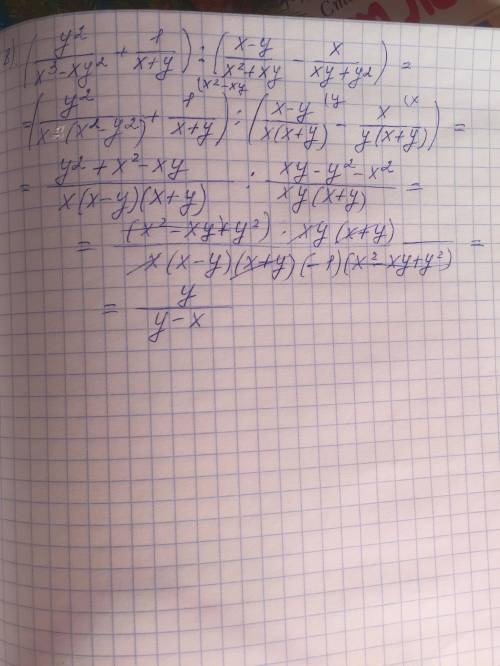 в) (y²/(x³-xy²) + 1/(x+y)) : ((x-y)/(x²+xy) - x/(xy+y²)) =
= (y²/(x(x²-y²)) + 1/(x+y) (x²-xy) : ((x-y)/(x(x+y)) (y - x/(y(x+y)) (x) =
= (y²+x²-xy)/(x(x-y)(x+y)) : (xy-y²-x²)/(xy(x+y)) =
= ((x²-xy+y²) · xy(x+y))/(x(x-y)(x+y)(-1)(x²-xy+y²)) =
= y/(y-x)